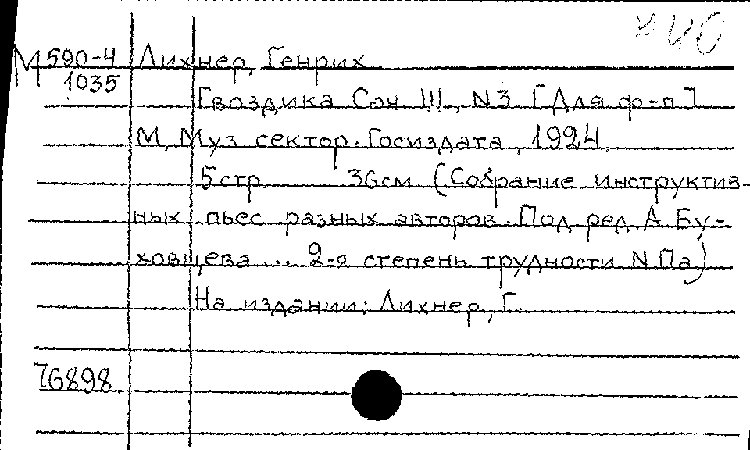 М 590-4 Лихнер, Генрих
1035
Гвоздика Соч. 111, N3 [Для ф-п]
М, Муз сектор. Госиздата, 1924.
5стр 36см (Собрание инструктив-
ных пьес разных авторов. Под ред. А. Бу-
ховцева ... 2-я степень трудности N. Па)
На издании: Лихнер, Г.
76898